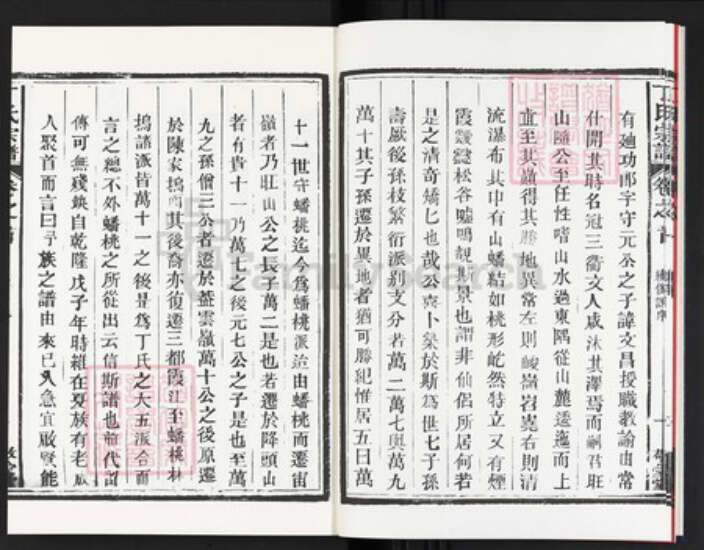 丁氏宗譜
卷之首
有廸功郎字守元公之子諱文昌授職教諭由常
仕開其時名冠三衢文人咸沐其澤焉而嗣君旺
山隨公至任性嗜山水過東隅從山麓逶迤而上
直至其巔得其勝地異常左則峻嶺岩嶤右則清
流瀑布其中有山蟠結如桃形屹然特立又有煙
霞幾變松谷嘘鳴覩斯景也謂非仙侶所居何若
是之清奇矯七也哉公喪卜築於斯為世七子孫
壽厥後孫枝繁衍派别支分者萬二萬七與萬九
萬十其子孫遷於異地者猶可勝紀惟居五曰萬
十一世守蟠桃迄今為蟠桃派始由蟠桃而遷宙
嶺者乃旺山公之長子萬二是也若遷於降頭山
者有貴十一乃萬七之後元七公之子是也至萬
九之孫僧三公者遷於盖雲嶺萬十公之後原遷
於陳家塢而其後裔亦復遷三都霞江至蟠桃林
塢諸派皆萬十一之後是為丁氏之大五派合而
言之總不外蟠桃之所從出云信斯譜也世代
傳可無殘缺自乾隆戊子年時維在夏族有老成
人聚首而言曰予族之譜由來已久急宜啟賢能
氏宗譜
FamilySearch